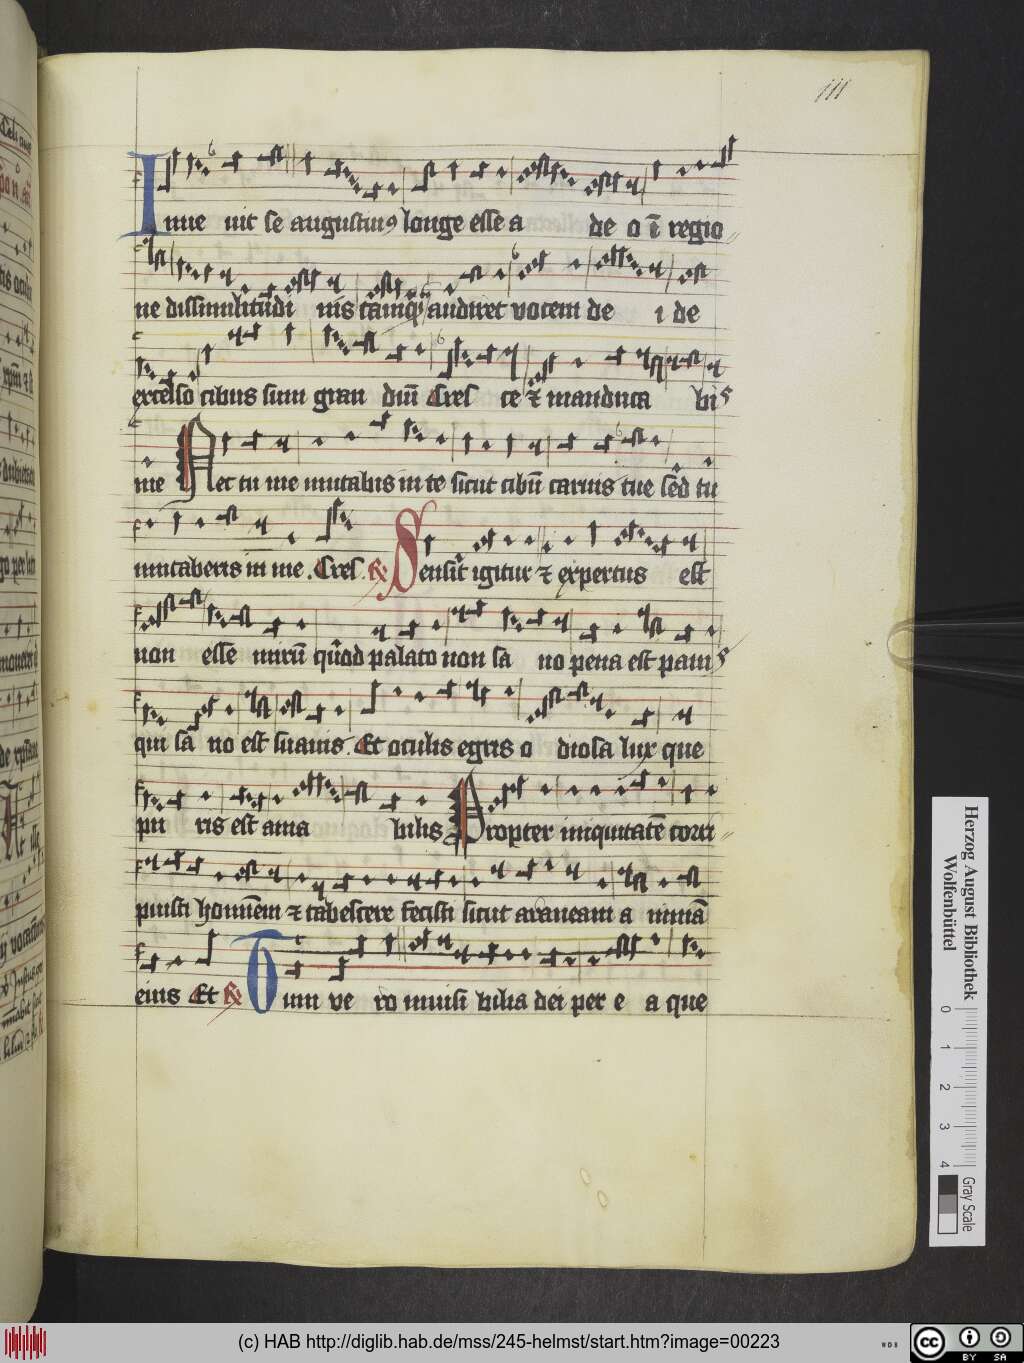 111
Inue nit se augustinꝰ longe esse a de o ī regio
ne dissimilitūdi nis tamq̄ audiret vocem de i de
excelso cibus sum gran diū Cres ce ⁊ manduca bis
me Nec tu me mutabis in te sicut cibū carnis tue sed tu
mutaberis in me . Cres . ℟ Sensit igitur ⁊ expertus est
non esse mirū quod palato non sa no pena est panis
qui sā no est suauis . Et oculis egris o diosa lux que
pu ris est ama bilis Propter iniquitatē corri
puisti hominem ⁊ tabescere fecisti sicut araneam a nimā
eius Et ℟ Tunc ve ro inuisi bilia dei per e a que
Herzog August Bibliothek
Wolfenbüttel
0 1 2 3 4
Gray Scale
(c) HAB http://diglib.hab.de/mss/245-helmst/start.htm?image=00223
WDB
cc BY SA